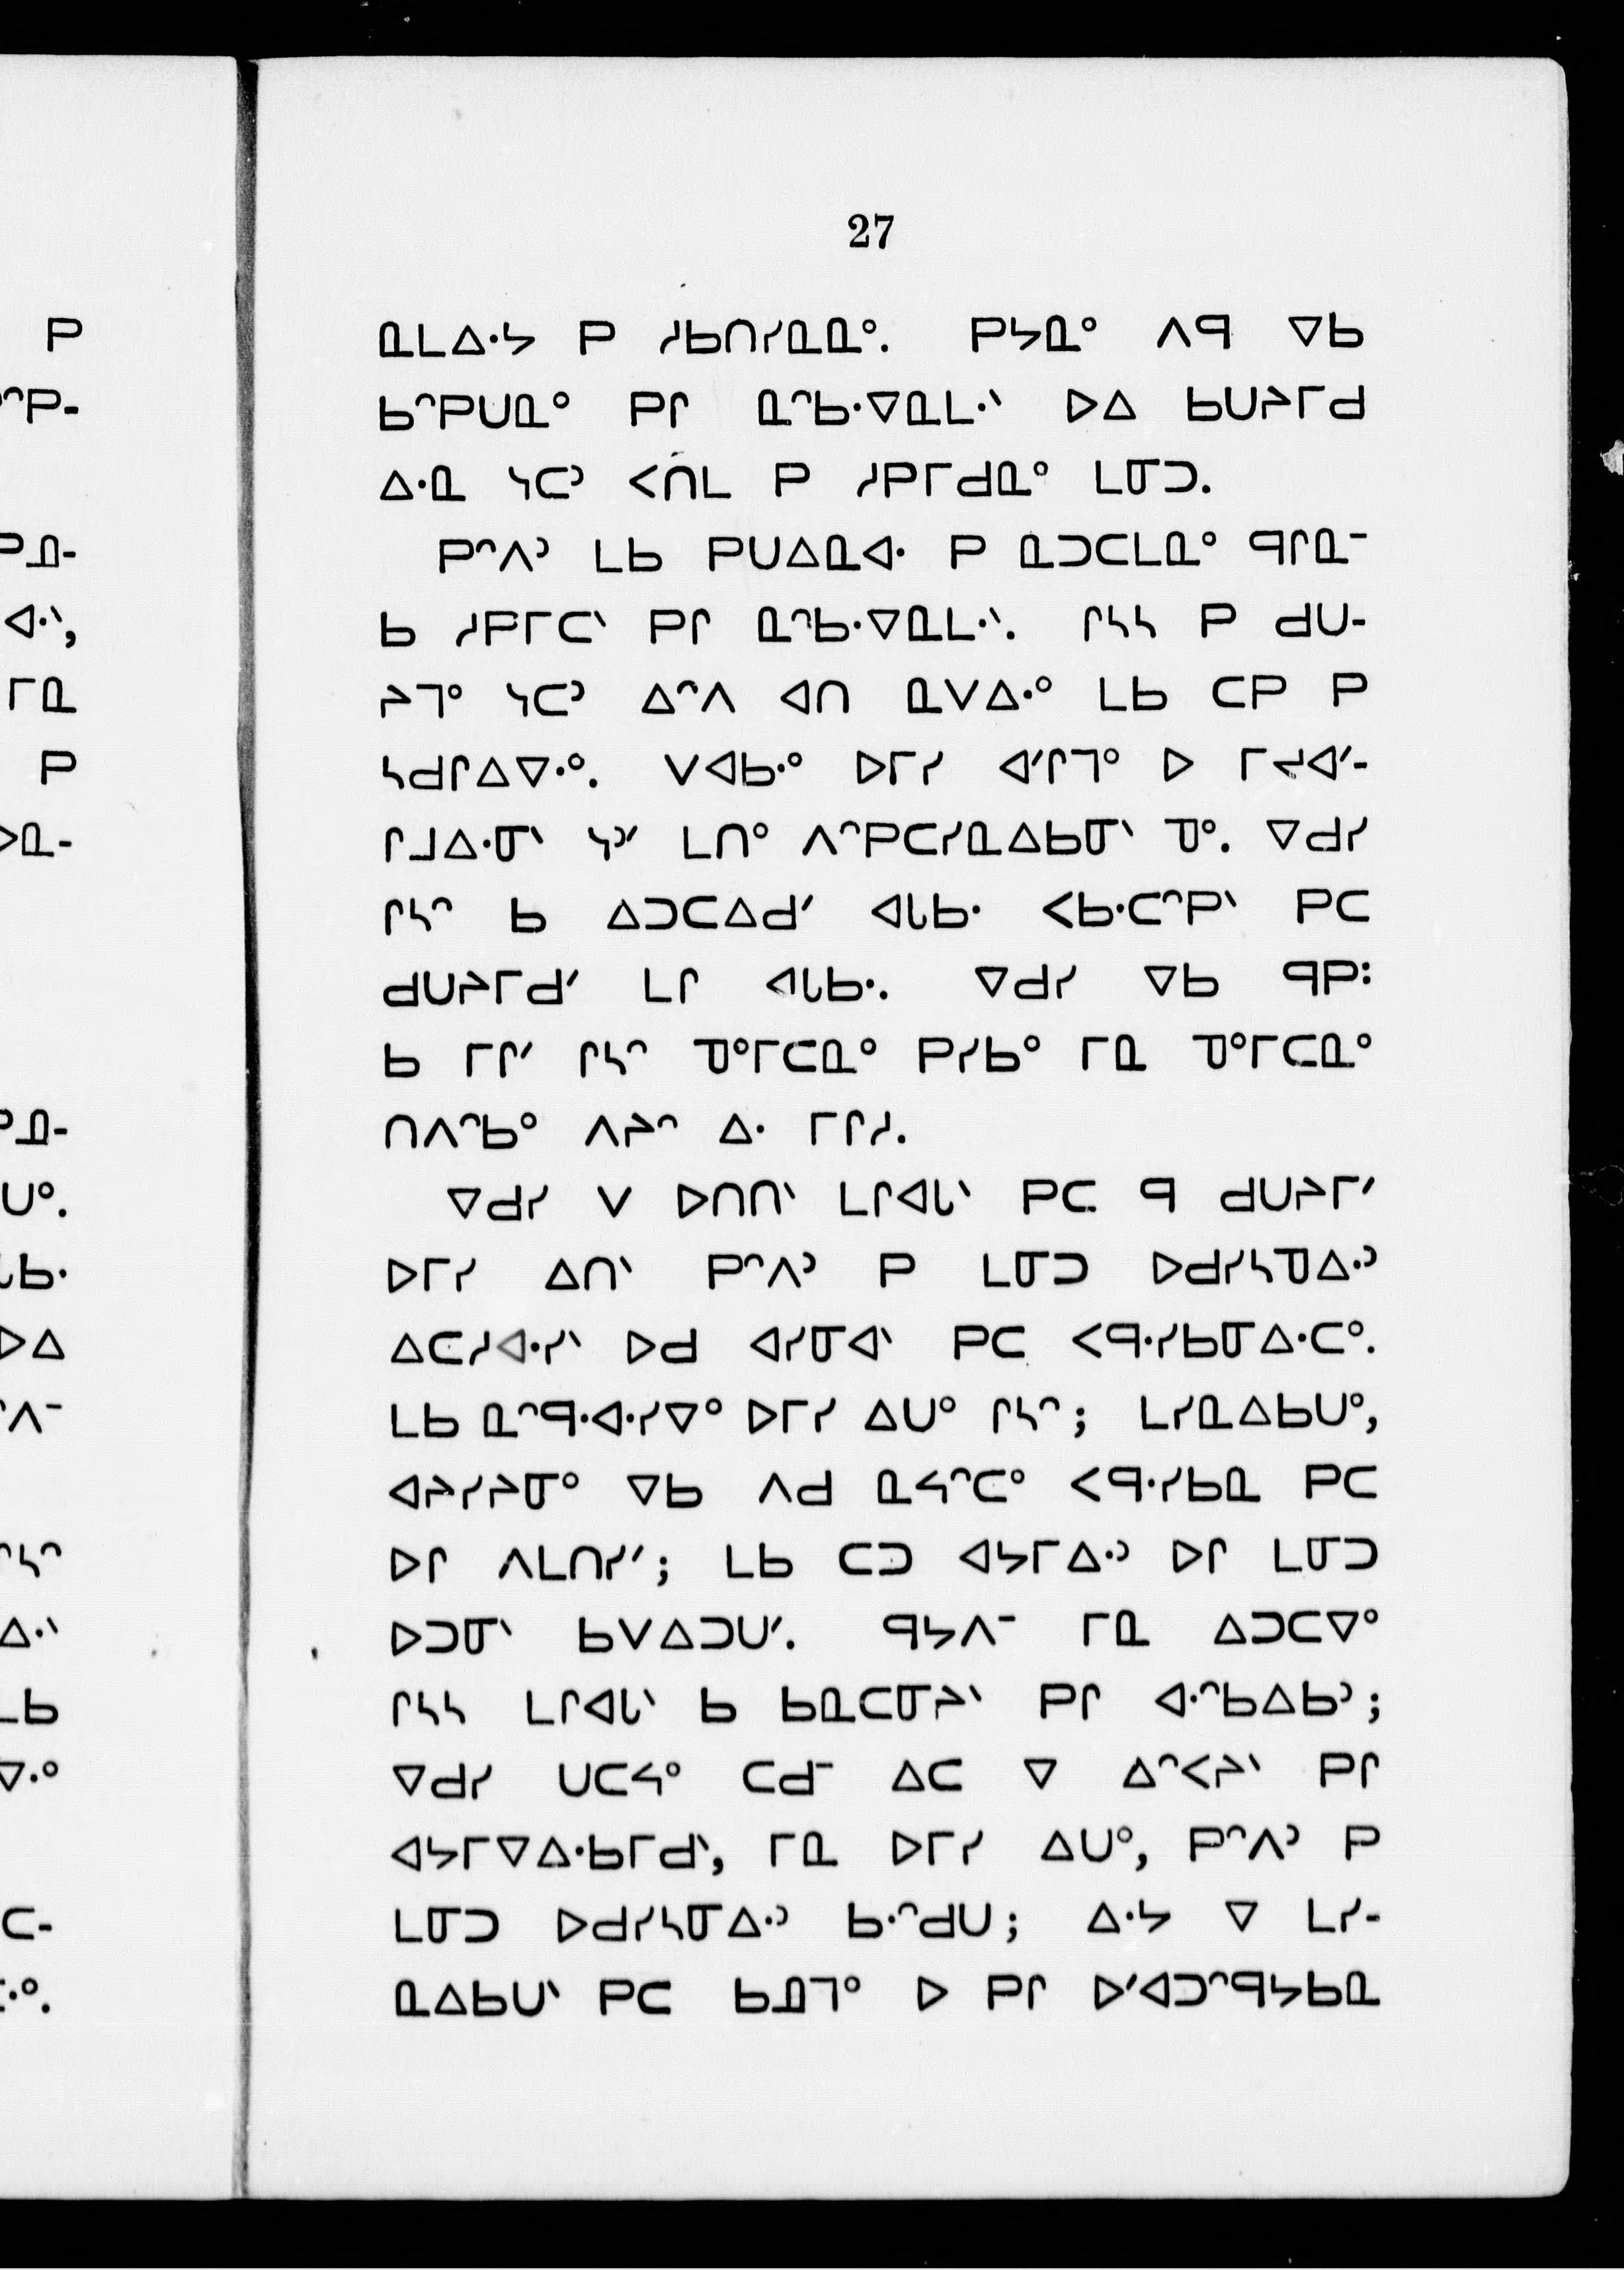 27
ᓇᒪᐃᐧᔭ ᑭ ᓱᑲᑎᓯᓇᓇᐤ. ᑭᔭᓇᐤ ᐱᑫ ᐁᑲ
ᑲᐢᑭᑌᓇᐤ ᑭᒋ ᓇᐢᑲᐧᐁᓇᒪᐧᐠ ᐅᐃ ᑲᑌᔨᒥᑯ
ᐃᐧᓇ ᓭᑕᐣ ᐸᑎᒪ ᑭ ᓱᑭᒥᑯᓇᐤ ᒪᓂᑐ.
ᑭᐢᐱᐣ ᒪᑲ ᑭᑌᐃᓇᐊᐧ ᑭ ᓇᑐᑕᒪᓇᐤ ᑫᒋᓇᐨ
ᑲ ᓱᑭᒥᑕᐠ ᑭᒋ ᓇᐢᑲᐧᐁᓇᒪᐧᐠ. ᒋᓴᓴ ᑭ ᑯᑌ-
ᔨᒣᐤ ᓭᑕᐣ ᐃᐢᐱ ᐊᑎ ᓇᐯᐃᐧᐤ ᒪᑲ ᑕᑭ ᑭ
ᓴᑯᒋᐃᐁᐧᐤ. ᐯᐊᑲᐧᐤ ᐅᒥᓯ ᐊᐟᒋᒣᐤ ᐅ ᒥᔪᐊᐟ-
ᒋᒧᐃᐧᓂᐠ ᓭᐣᐟ ᒪᑎᐤ ᐱᐢᑭᑕᓯᓇᐃᑲᓂᐠ ᓀᐤ. ᐁᑯᓯ
ᒋᓴᐢ ᑲ ᐃᑐᑕᐃᑯᐟ ᐊᒐᑲᐧ ᐸᑲᐧᑕᐢᑭᐠ ᑭᑕ
ᑯᑌᔨᒥᑯᐟ ᒪᒋ ᐊᒐᑲᐧ. ᐁᑯᓯ ᐁᑲ ᑫᑭ:
ᑲ ᒥᒋᐟ ᒋᓴᐢ ᓀᐤᒥᑕᓇᐤ ᑭᓯᑲᐤ ᒥᓇ ᓀᐤᒥᑕᓇᐤ
ᑎᐱᐢᑲᐤ ᐱᔨᐢ ᐃᐧ ᒥᒋᓱ.
ᐁᑯᓯ ᐯ ᐅᑎᑎᐠ ᒪᒋᐊᒐᐠ ᑭᑕ ᑫ ᑯᑌᔨᒥᐟ
ᐅᒥᓯ ᐃᑎᐠ ᑭᐢᐱᐣ ᑭ ᒪᓂᑐ ᐅᑯᓯᓴᓀᐃᐧᐣ
ᐃᑕᓱᐊᐧᓯᐠ ᐅᑯ ᐊᓯᓂᐊᐠ ᑭᑕ ᐸᑫᐧᓯᑲᓂᐃᐧᑕᐤ.
ᒪᑲ ᓇᐢᑫᐧᐊᐧᓯᐁᐤ ᐅᒥᓯ ᐃᑌᐤ ᒋᓴᐢ; ᒪᓯᓇᐃᑲᑌᐤ,
ᐊᔨᓯᔨᓂᐤ ᐁᑲ ᐱᑯ ᓇᔦᐢᑕᐤ ᐸᑫᐧᓯᑲᓇ ᑭᑕ
ᐅᒋ ᐱᒪᑎᓯᐟ; ᒪᑲ ᑕᑐ ᐊᔭᒥᐃᐧᐣ ᐅᒋ ᒪᓂᑐ
ᐅᑐᓂᐠ ᑲᐯᐃᑐᑌᐟ. ᑫᔭᐱᐨ ᒥᓇ ᐃᑐᑕᐁᐤ
ᒋᓴᓴ ᒪᒋᐊᒐᐠ ᑲ ᑲᓇᑕᓂᔨᐠ ᑭᒋ ᐊᐧᐢᑲᐃᑲᐣ;
ᐁᑯᓯ ᑌᑕᔦᐤ ᑕᑯᐨ ᐃᑕ ᐁ ᐃᐢᐸᔨᐠ ᑭᒋ
ᐊᔭᒥᐁᐃᐧᑲᒥᑯᐠ, ᒥᓇ ᐅᒥᓯ ᐃᑌᐤ, ᑭᐢᐱᐣ ᑭ
ᒪᓂᑐ ᐅᑯᓯᓴᓂᐃᐧᐣ ᑲᐧᐢᑯᑌ; ᐃᐧᔭ ᐁ ᒪᓯ-
ᓇᐃᑲᑌᐠ ᑭᑕ ᑲᓄᒣᐤ ᐅ ᑭᒋ ᐅᐟᐊᑐᐢᑫᔭᑲᓇ